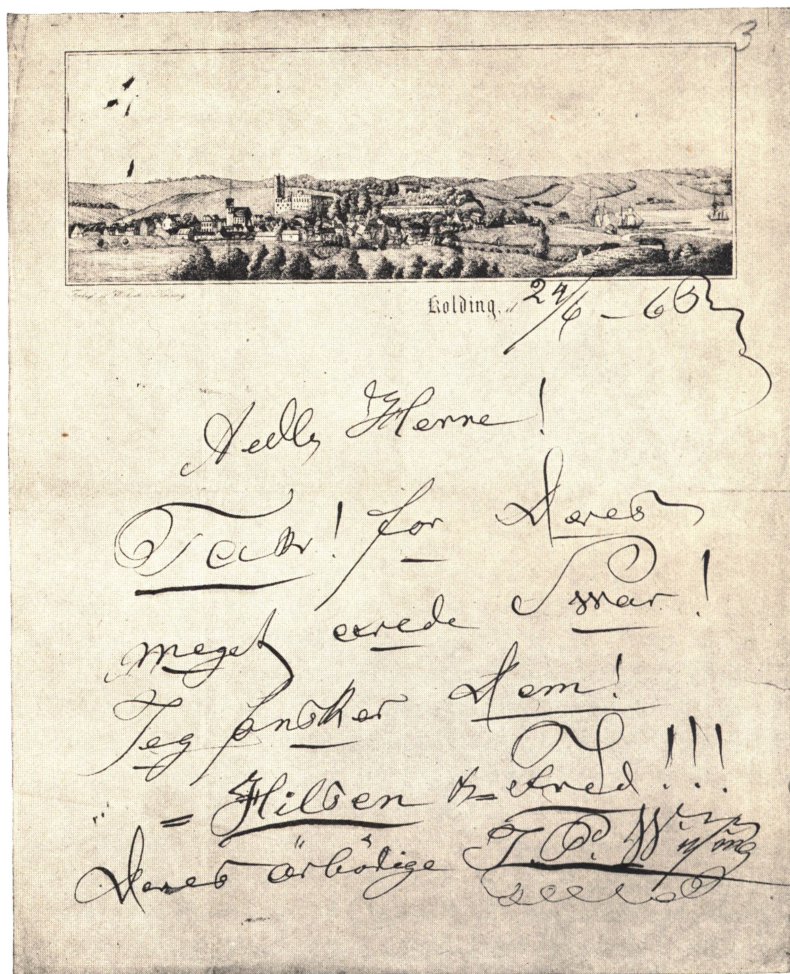 3
Kolding, d 24/6 – 66
Aedle Herre!
Tack! for Deres
meget ærede Swar!
Jeg önsker Dem!
= Hilsen & Fred!!!
Deres ärbödige J. P.